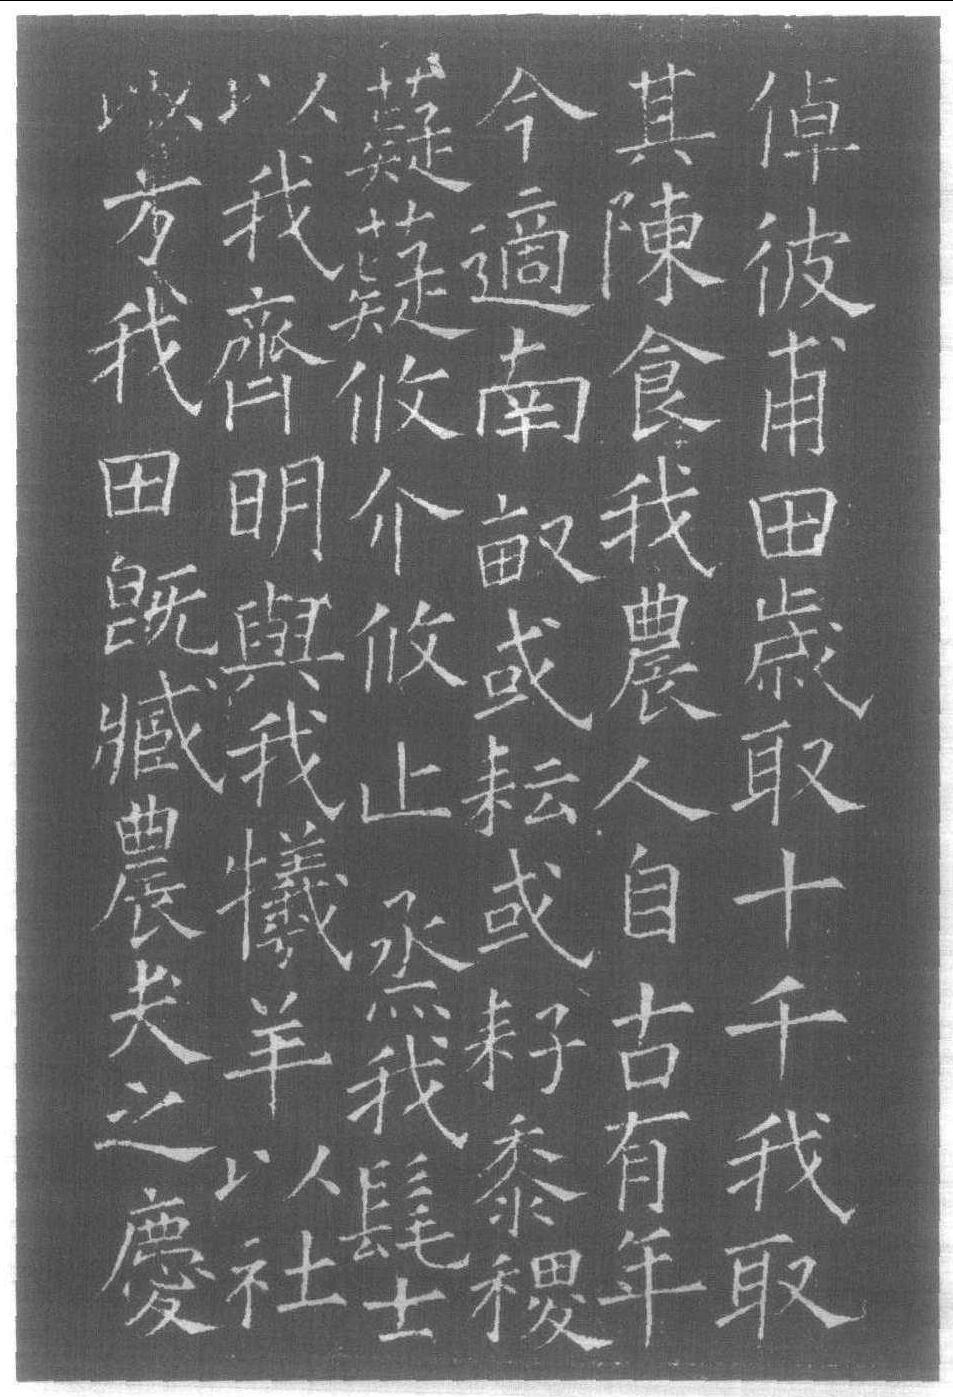 倬彼甫田歲取十千我取
其陳食我農人自古有年
今適南畝或耘或耔黍稷
薿薿攸介攸止烝我髦士
以我齊明與我犧羊以社
以方我田既臧農夫之慶